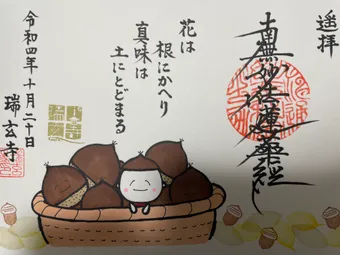 遥拝
南無妙法蓮華経
花は
根にかへり
真味は
土にとどまる
令和四年十月二十日
瑞玄寺